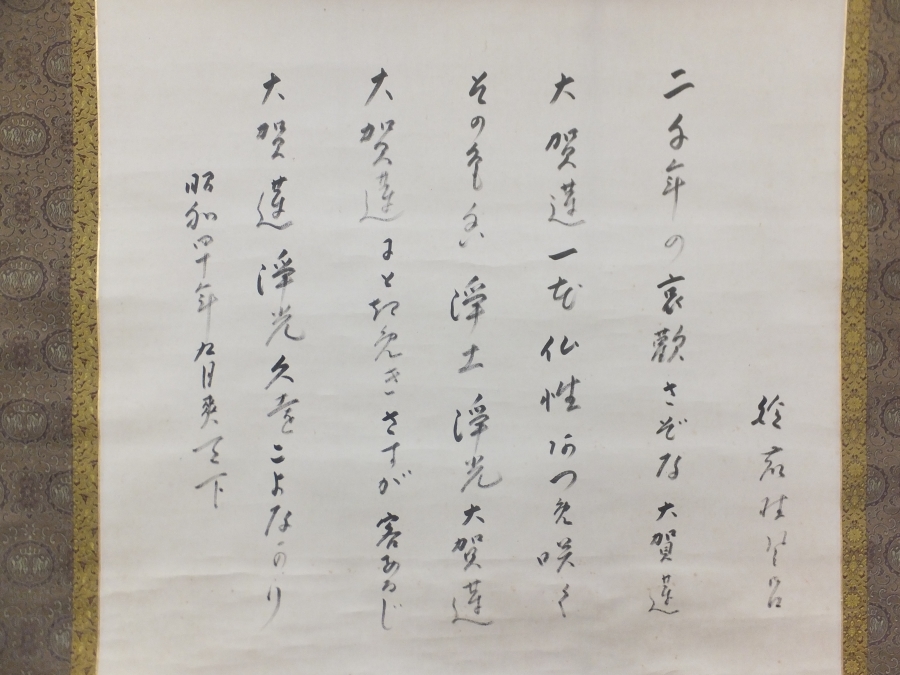 二千年の哀歓さぞな大賀蓮
大賀蓮一花仏性あつめ咲く
その色香浄土浄光大賀蓮
大賀蓮まと起きさすが客あるじ
大賀蓮浄光久遠こよなかり
昭和四十年九月爽天下